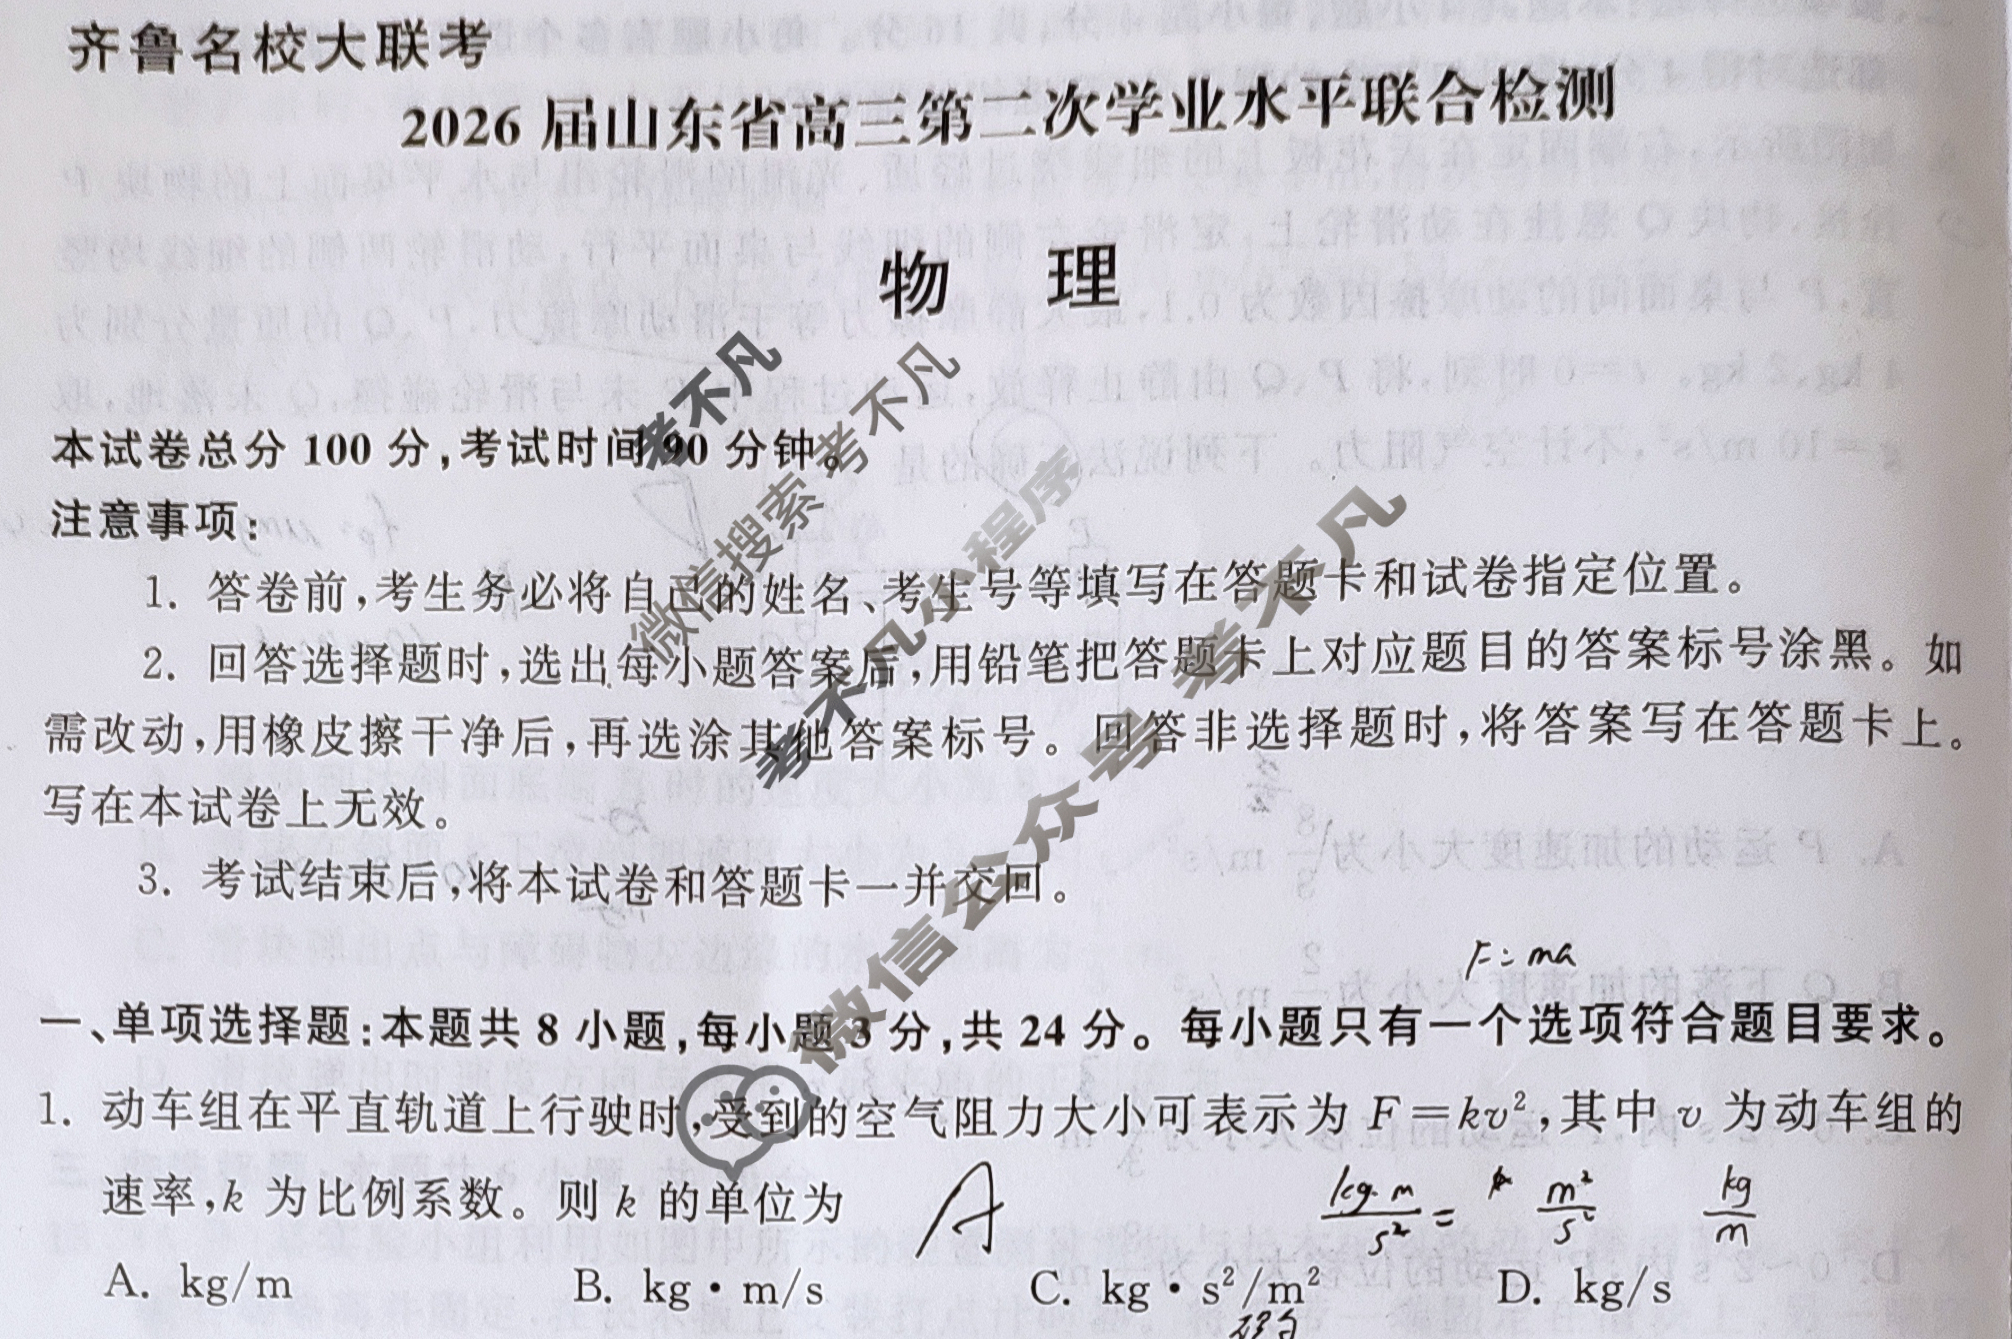 齐鲁名校大联考
2026 届山东省高三第二次学业水平联合检测
物 理
本试卷总分 100 分,考试时间 90 分钟。
注意事项:
1. 答卷前,考生务必将自己的姓名、考生号等填写在答题卡和试卷指定位置。
2. 回答选择题时,选出每小题答案后,用铅笔把答题卡上对应题目的答案标号涂黑。如
需改动,用橡皮擦干净后,再选涂其他答案标号。回答非选择题时,将答案写在答题卡上。
写在本试卷上无效。
3. 考试结束后,将本试卷和答题卡一并交回。
F=ma
一、单项选择题:本题共 8 小题,每小题 3 分,共 24 分。每小题只有一个选项符合题目要求。
1. 动车组在平直轨道上行驶时,受到的空气阻力大小可表示为 F=kv²,其中 v 为动车组的
速率,k 为比例系数。则 k 的单位为
A
kg·m/s² = k m²/s² kg/m
A. kg/m B. kg·m/s C. kg·s²/m² D. kg/s
考不凡
微信搜索考不凡
考不凡小程序
微信公众号考不凡